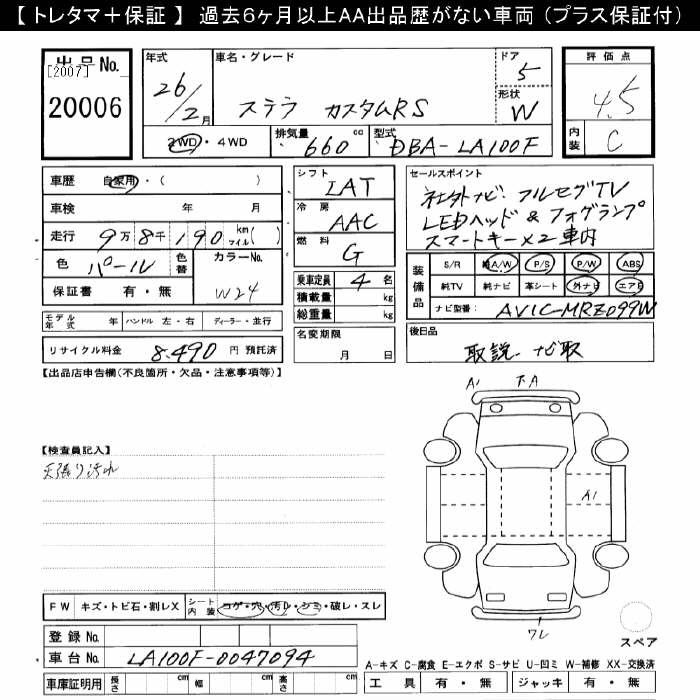 【 トレタマ＋保証 】 過去6ヶ月以上AA出品歴がない車両（プラス保証付）
出品 No. [2007] 20006
年式 26/2月
車名・グレード ステラ カスタムRS
ドア 5
形状 W
2WD・4WD
排気量 660 cc
型式 DBA-LA100F
評価点 4.5
内装 C
車歴 自家用・（ ）
車検 年 月
走行 9万8千190 km マイル( )
色 パール 色替 カラーNo. W24
保証書 有・無
シフト IAT
冷房 AAC
燃料 G
乗車定員 4 名
積載量 kg
総重量 kg
セールスポイント
社外ナビ・フルセグTV
LEDヘッド & フォグランプ
スマートキー×2 車内
装備品 S/R 純A/W P/S P/W ABS
純TV 純ナビ 革シート 外ナビ エアB
ナビ型番 AVIC-MRZ099W
モデル年式 年 ハンドル 左・右 ディーラー・並行
リサイクル料金 8,490 円 預託済
名変期限 月 日
後日品 取説 ナビ取
【出品店申告欄(不良箇所・欠品・注意事項等)】
【検査員記入】
天張り汚れ
A1 下A
A1
ワレ
スペア
FW キズ・トビ石・割レX シート内装 コゲ・穴・汚レ・シミ・破レ・スレ
登録 No.
車台 No. LA100F-0047094
車庫証明用 長さ cm 幅 cm 高さ cm
A-キズ C-腐食 E-エクボ S-サビ U-凹ミ W-補修 XX-交換済
工具 有・無 ジャッキ 有・無